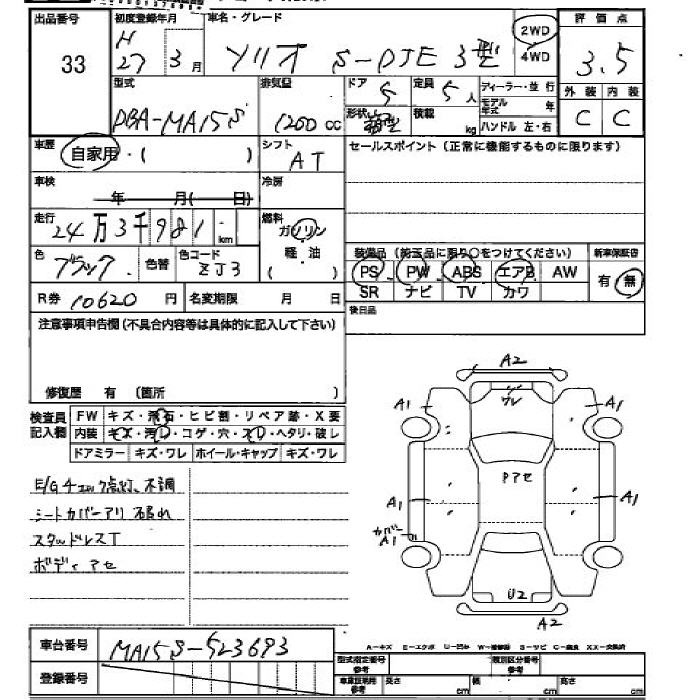 出品番号
33
初度登録年月
H
27 3月
車名・グレード
ソリオ S-DJE 3型
2WD
4WD
評価点
3.5
型式
DBA-MA15S
排気量
1200cc
ドア
5
定員
5人
形状
箱型
積載
kg
ディーラー・並行
モデル年式 年
ハンドル 左・右
外装 内装
C C
車歴
自家用・( )
シフト
AT
セールスポイント(正常に機能するものに限ります)
車検
年 月( 日)
冷房
走行
24万3千981 km
燃料
ガソリン
軽油
色
ブラック
色替
色コード
ZJ3
装備品(純正品に限り○をつけてください)
新車保証書
PS PW ABS エアB AW
有・無
SR ナビ TV カワ
R券 10620円
名変期限 月 日
後日品
注意事項申告欄(不具合内容等は具体的に記入して下さい)
修復歴 有 (箇所 )
検査員
記入欄
FW キズ・飛石・ヒビ割・リペア跡・X要
内装 キズ・汚レ・コゲ・穴・スレ・ヘタリ・破レ
ドアミラー キズ・ワレ ホイール・キャップ キズ・ワレ
E/Gチェック点灯、不調
シートカバーアリ 破れ
スタッドレスT
ボディアセ
A2
ワレ
A1
A1
Pアセ
A1
A1
カバー
A1
U2
A2
A-キズ E-エクボ U-凹み W-補修跡 S-サビ C-腐食 XX-交換済
車台番号
MA15S-523693
登録番号
型式指定番号
参考
類別区分番号
参考
車庫証明用
参考
長さ cm
幅 cm
高さ cm